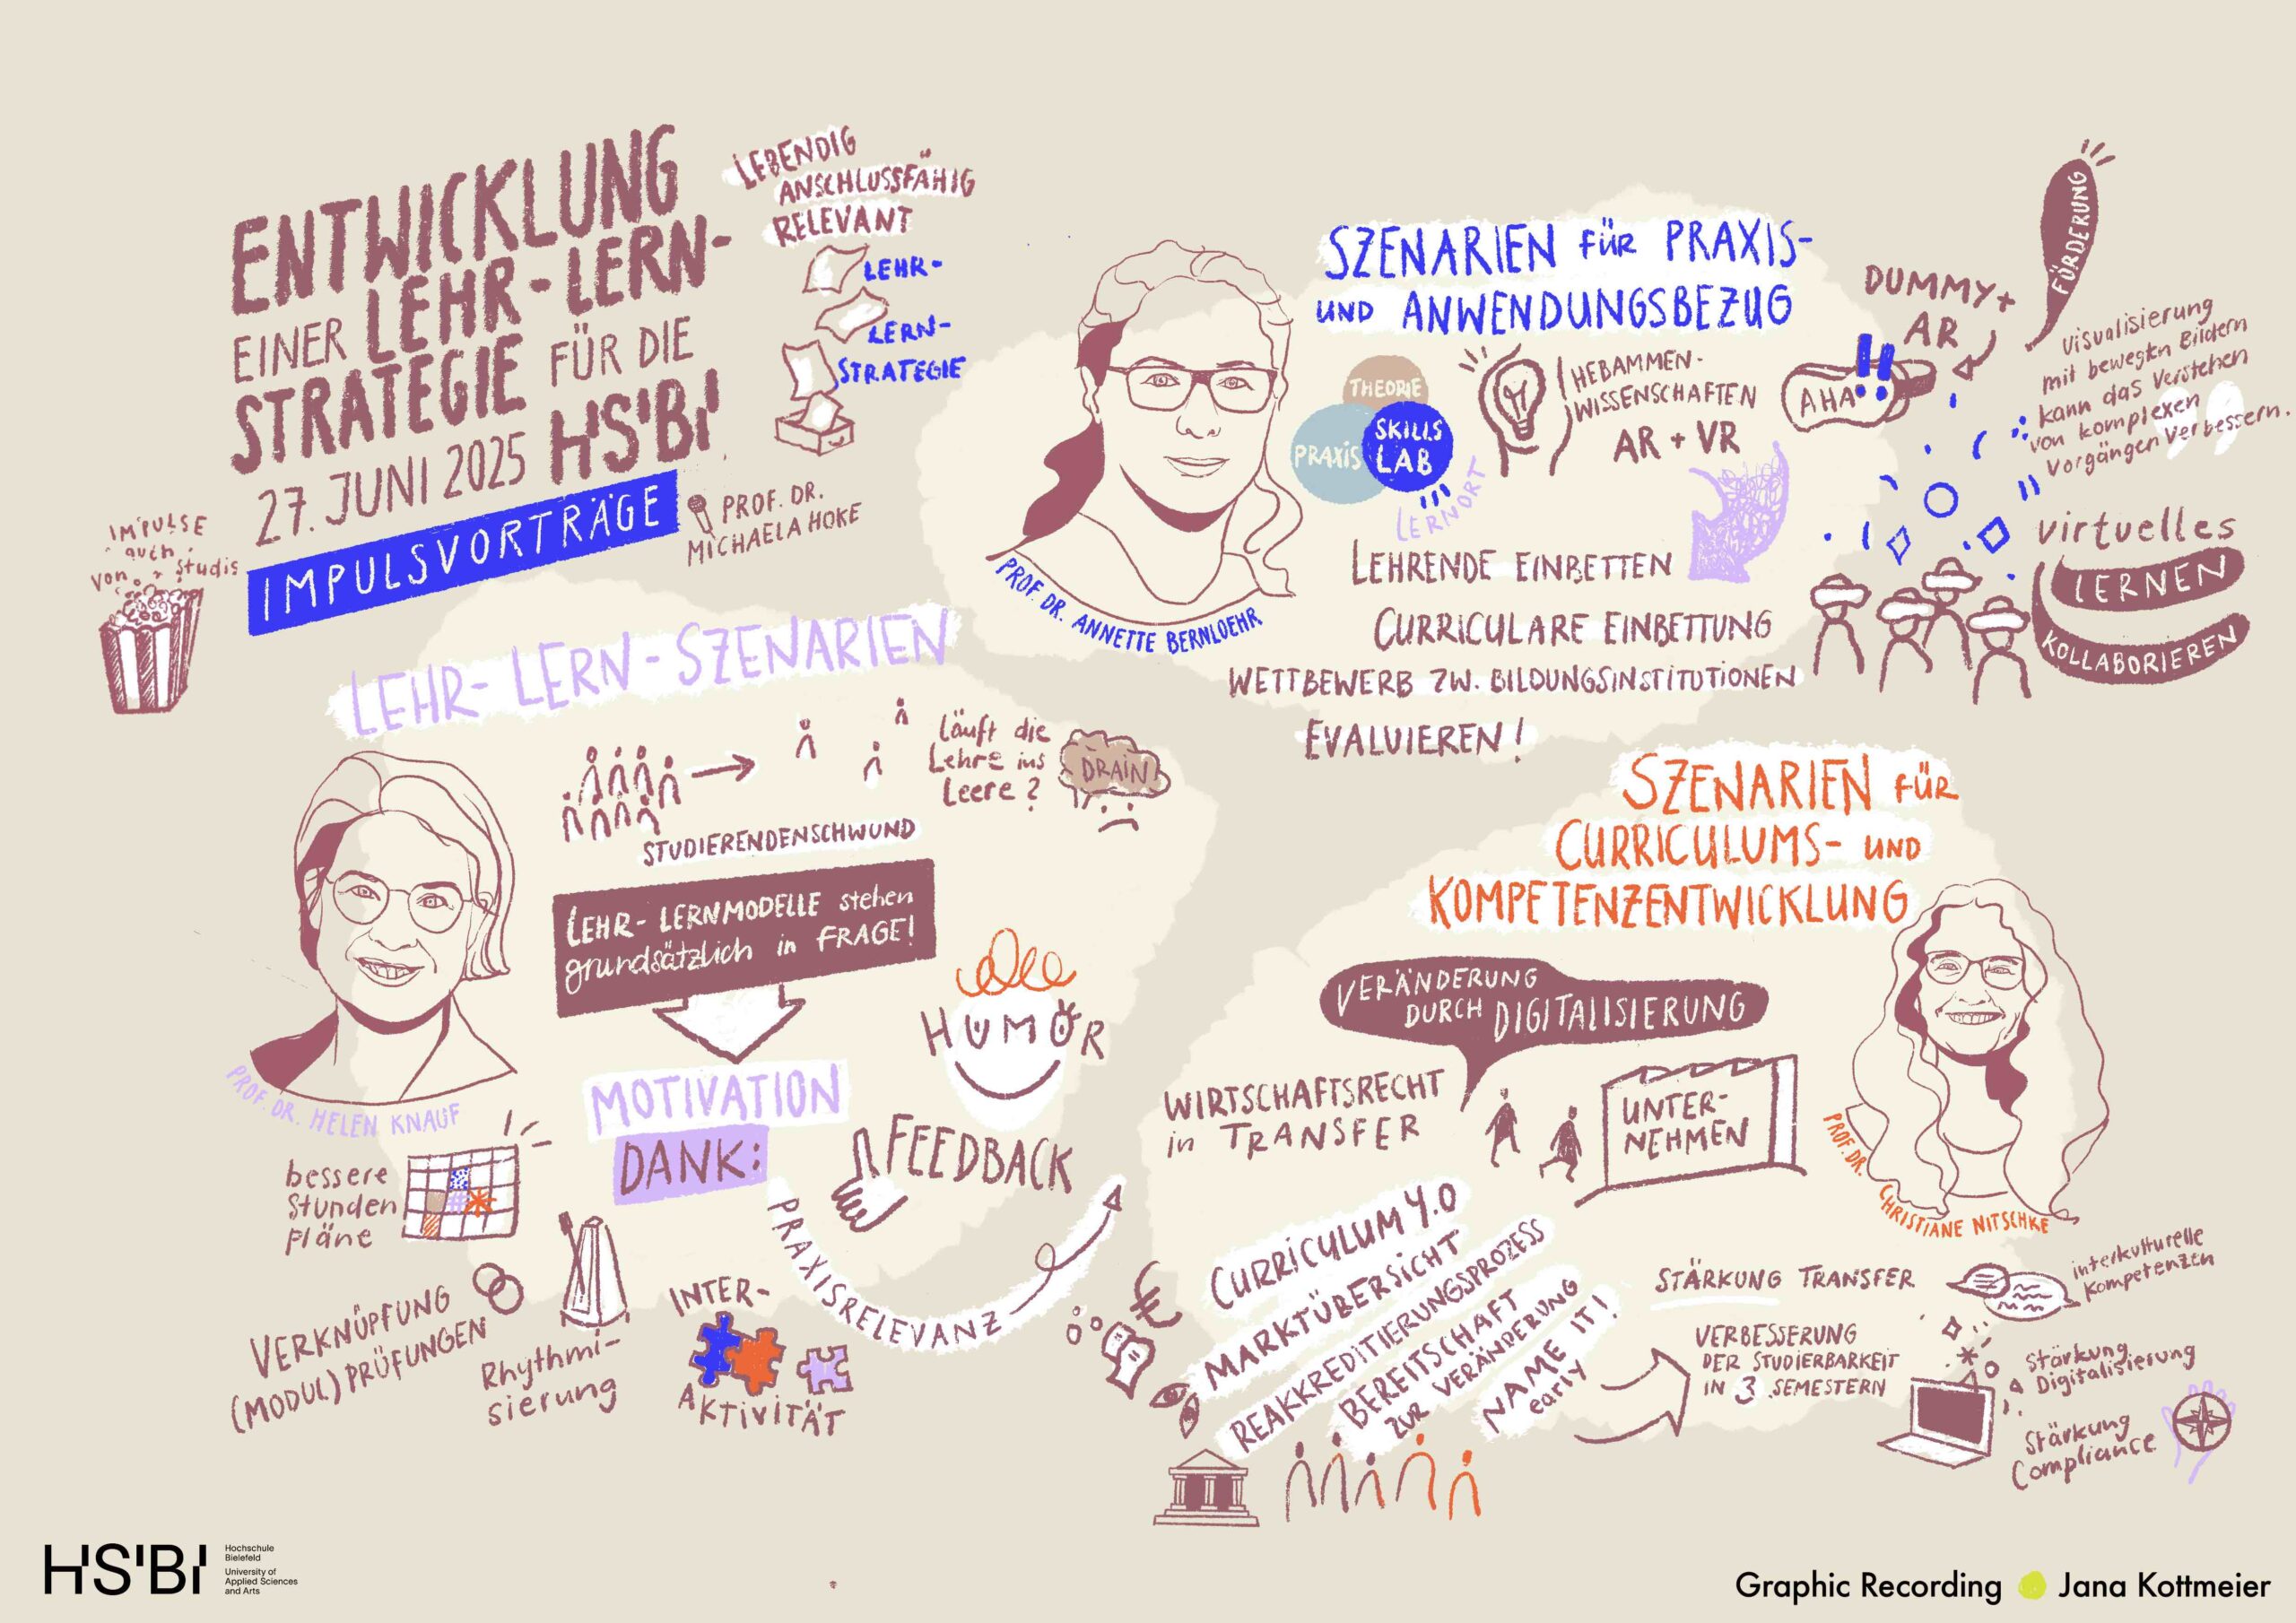 ENTWICKLUNG
EINER LEHR-LERN-
STRATEGIE FÜR DIE
27. JUNI 2025 HSBI
IMPULSVORTRÄGE
LEBENDIG
ANSCHLUSSFÄHIG
RELEVANT
LEHR-
LERN-
STRATEGIE
PROF. DR.
MICHAELA HOKE
IMPULSE
auch
von Studis
LEHR-LERN-SZENARIEN
PROF. DR. HELEN KNAUF
läuft die
Lehre ins
Leere?
DRAIN
STUDIERENDENSCHWUND
LEHR-LERNMODELLE stehen
grundsätzlich in FRAGE!
MOTIVATION
DANK:
HUMOR
FEEDBACK
PRAXISRELEVANZ
INTER-
AKTIVITÄT
Rhythmi-
sierung
bessere
Stunden
pläne
VERKNÜPFUNG
(MODUL)PRÜFUNGEN
SZENARIEN FÜR PRAXIS-
UND ANWENDUNGSBEZUG
PROF. DR. ANNETTE BERNLOEHR
THEORIE
PRAXIS
SKILLS
LAB
LERNORT
HEBAMMEN-
WISSENSCHAFTEN
AR + VR
AHA!!
DUMMY+
AR
FÖRDERUNG
Visualisierung
mit bewegten Bildern
kann das Verstehen
von komplexen
Vorgängen verbessern.
LEHRENDE EINBETTEN
CURRICULARE EINBETTUNG
WETTBEWERB ZW. BILDUNGSINSTITUTIONEN
EVALUIEREN!
virtuelles
LERNEN
KOLLABORIEREN
SZENARIEN FÜR
CURRICULUMS- UND
KOMPETENZENTWICKLUNG
PROF. DR. CHRISTIANE NITSCHKE
VERÄNDERUNG
DURCH DIGITALISIERUNG
WIRTSCHAFTSRECHT
in TRANSFER
UNTER-
NEHMEN
CURRICULUM 4.0
MARKTÜBERSICHT
REAKKREDITIERUNGSPROZESS
BEREITSCHAFT
ZUR VERÄNDERUNG
NAME IT!
early
€
STÄRKUNG TRANSFER
VERBESSERUNG
DER STUDIERBARKEIT
IN 3 SEMESTERN
interkulturelle
Kompetenzen
Stärkung
Digitalisierung
Stärkung
Compliance
HSBI
Hochschule
Bielefeld
University of
Applied Sciences
and Arts
Graphic Recording Jana Kottmeier